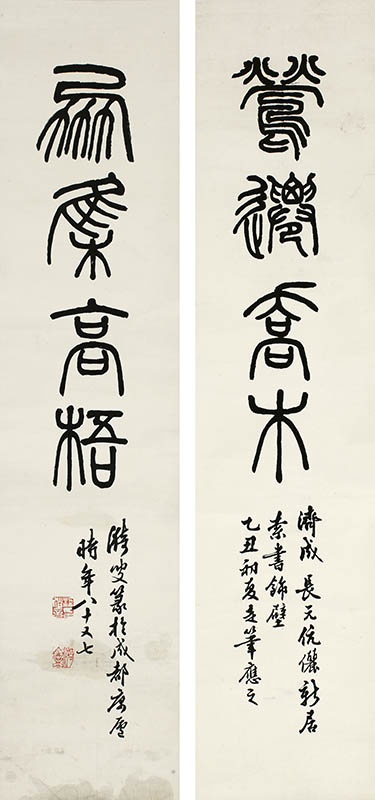 鶯遷喬木
濟成長元伉儷新居
索書飾壁
乙丑初夏走筆應之
鳳集高梧
叟篆於成都寓廬
時年八十又七